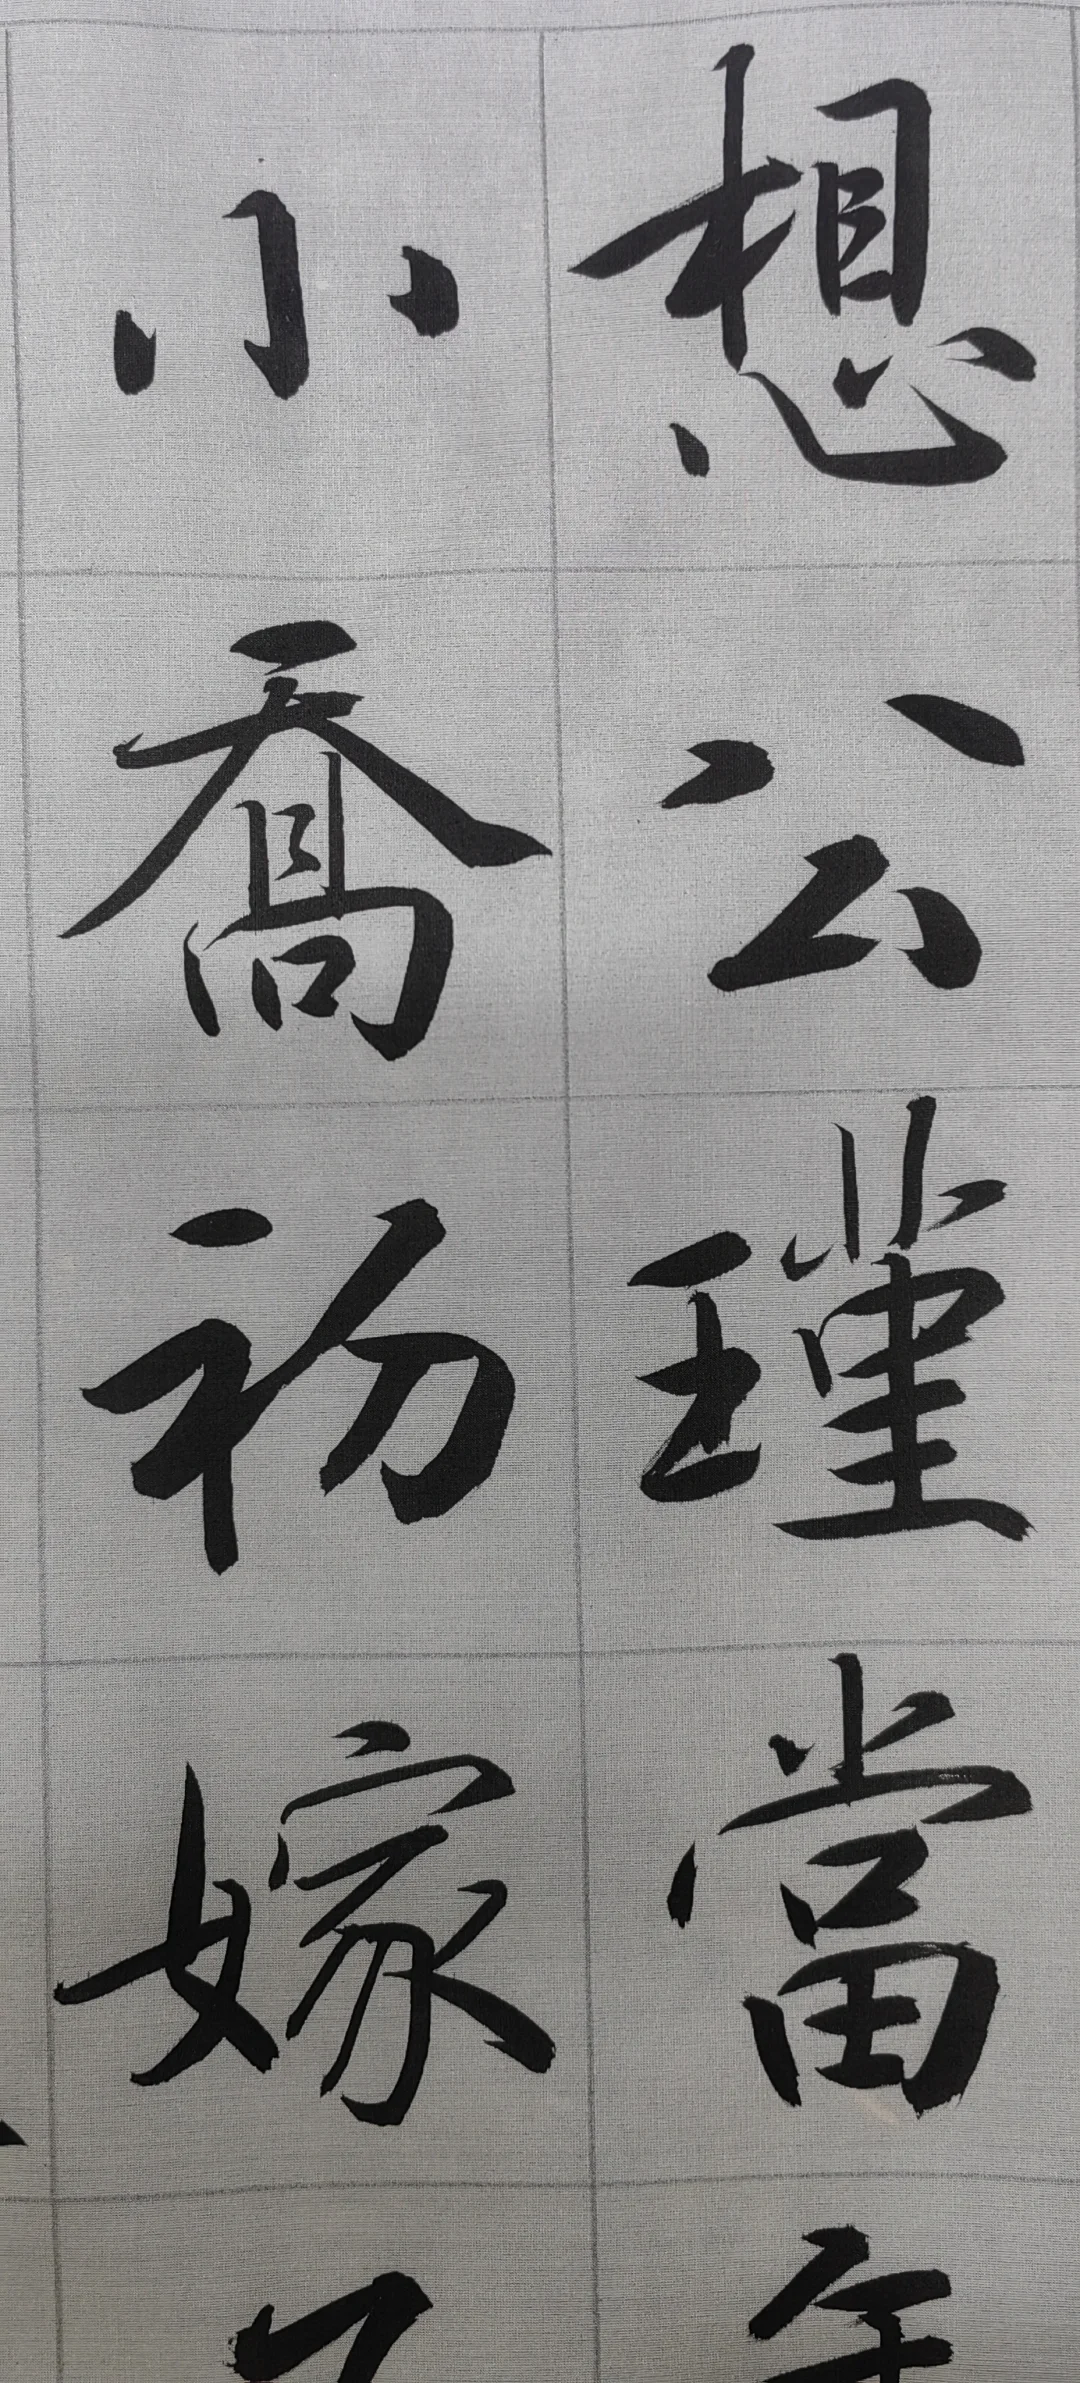 想公瑾當
小喬初嫁